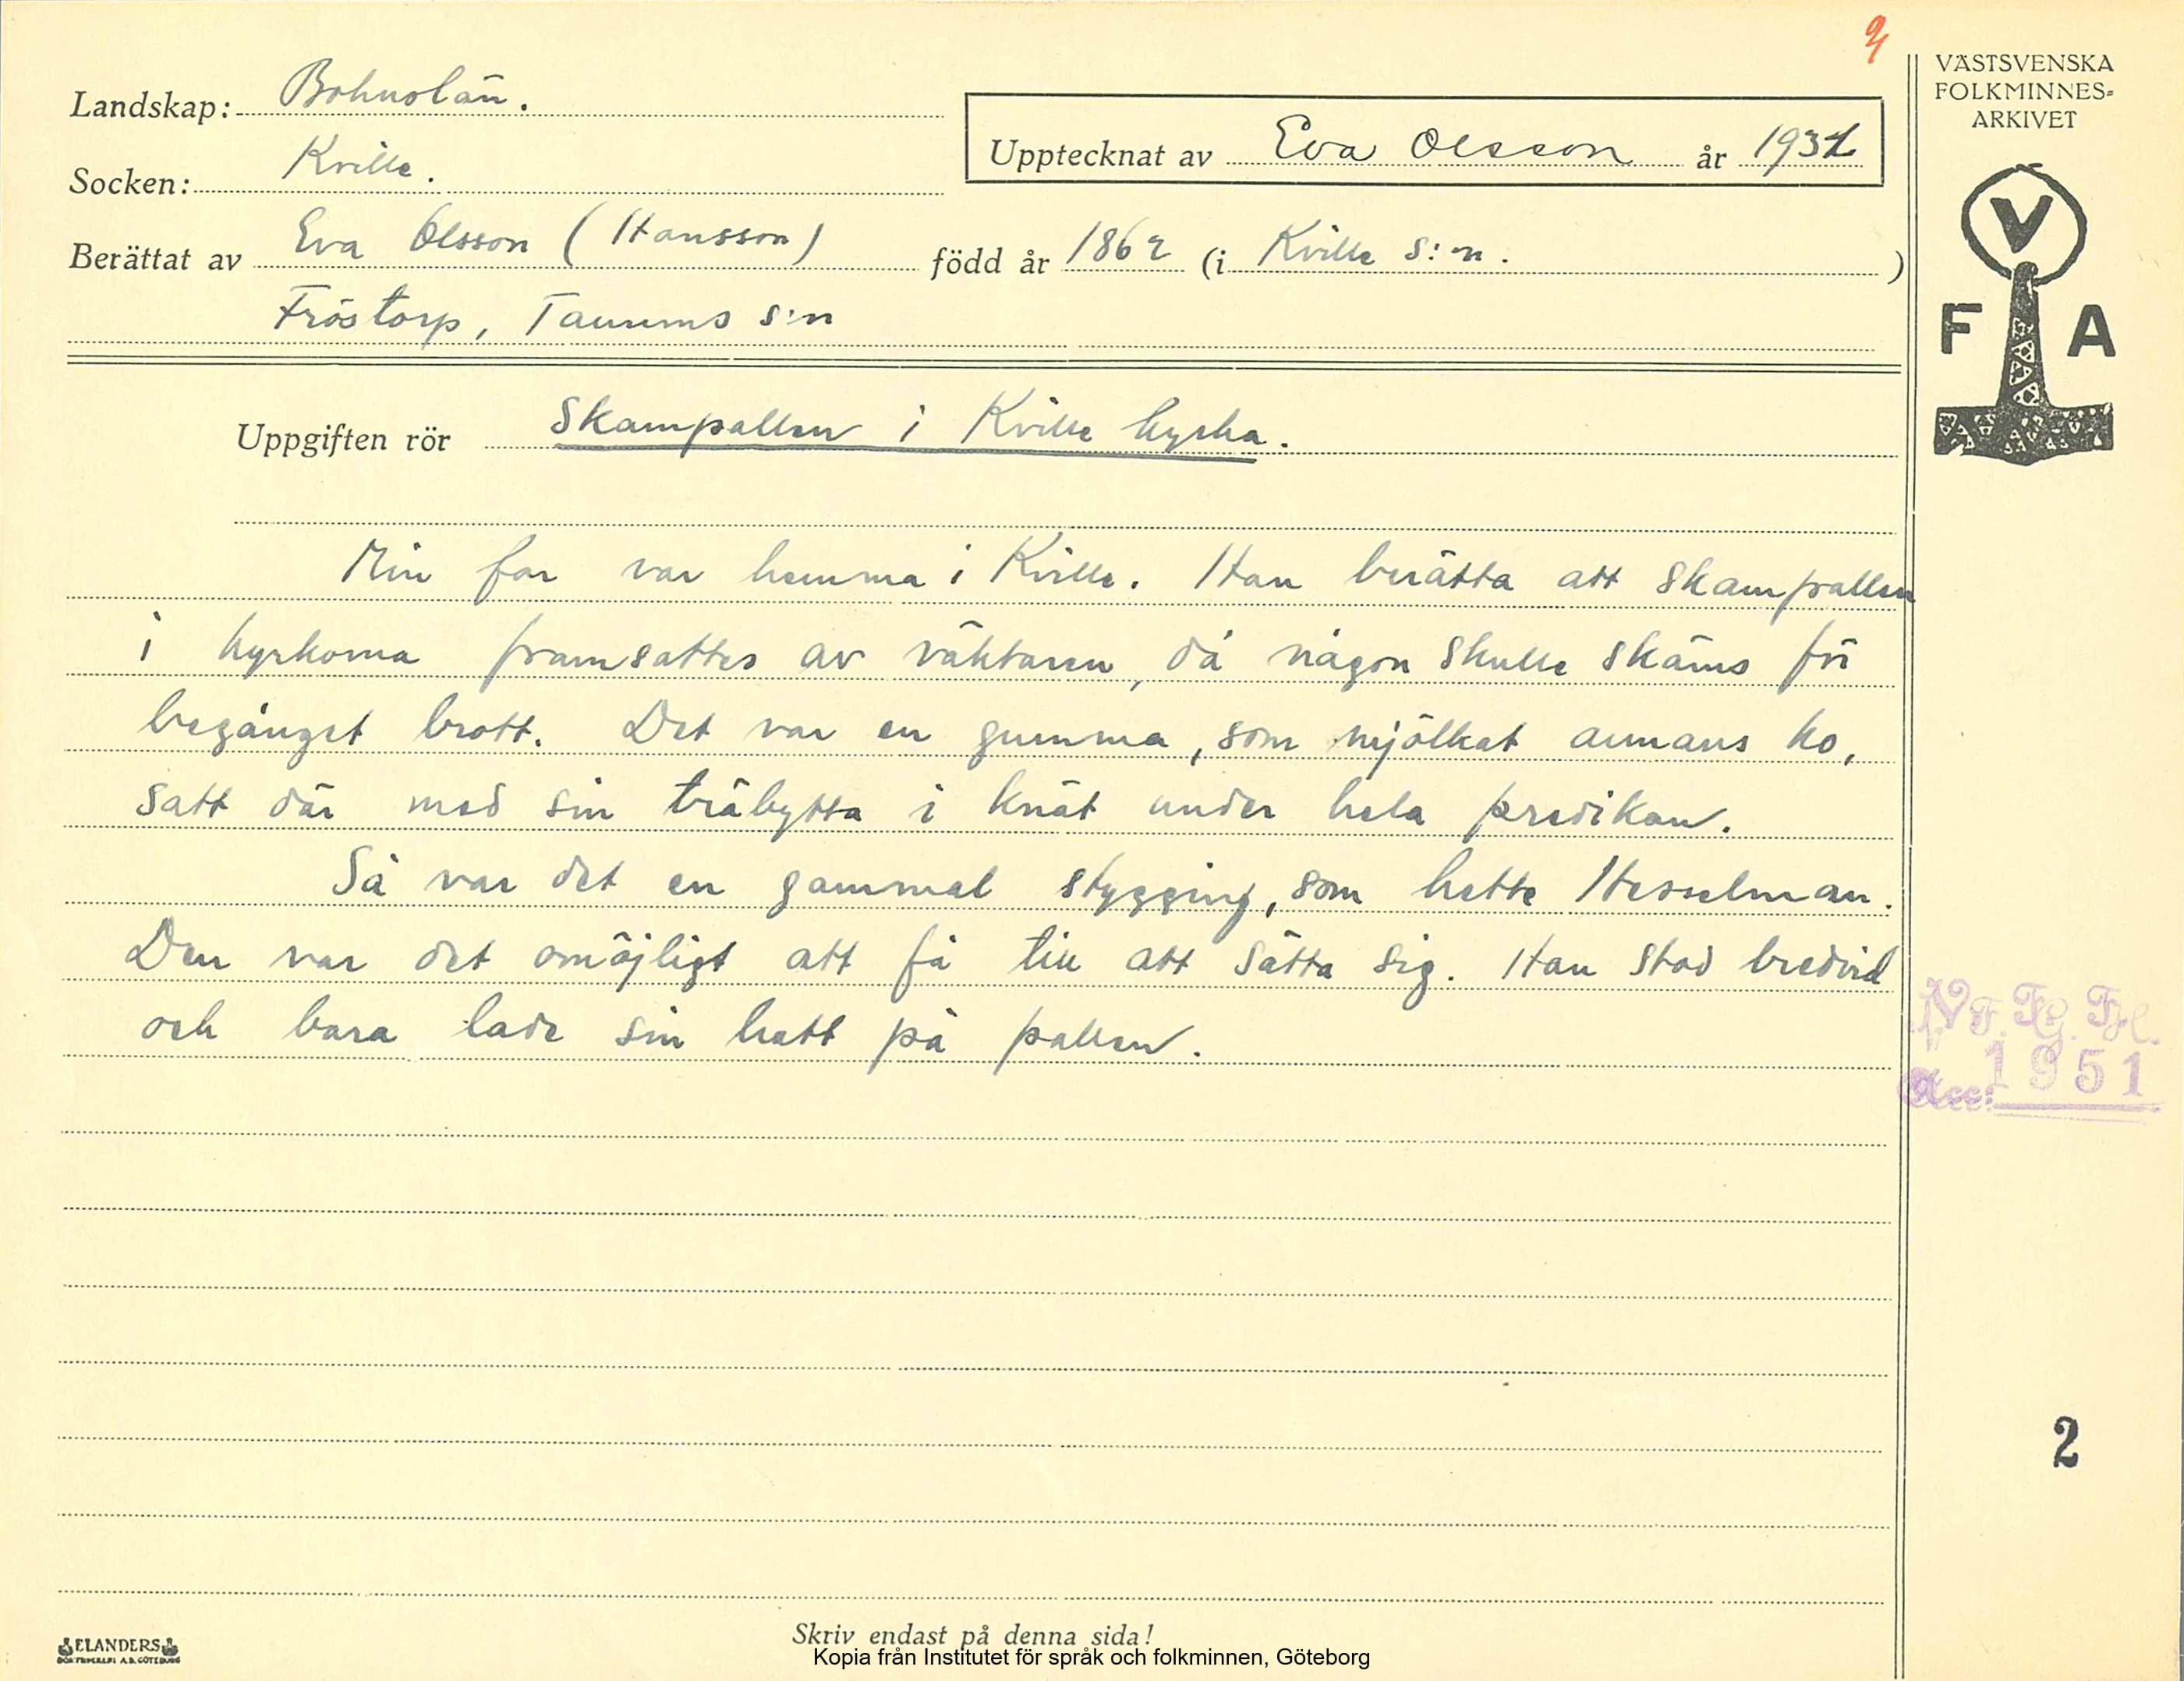 9
VÄSTSVENSKA
FOLKMINNES-
ARKIVET
Landskap: Bohuslän.
Upptecknat av Eva Olsson år 1931
Socken: Kville.
Berättat av Eva Olsson (Hansson) född år 1862 (i Kville s:n.)
Fröstorp, Tanums s:n
V
F A
Uppgiften rör Skampallen i Kville kyrka.
Min far var hemma i Kville. Han berätta att skampallen
i kyrkorna framsattes av väktaren, då någon skulle skäms för
begånget brott. Det var en gumma, som mjölkat annans ko,
satt där med sin träbytta i knät under hela predikan.
Så var det en gammal stygging, som hette Hesselman.
Den var det omöjligt att få till att sätta sig. Han stod bredvid
och bara lade sin hatt på pallen.
V.F.G.Fl.
Acc: 1951
2
ELANDERS
BOKTRYCKERI A.B. GÖTEBORG
Skriv endast på denna sida!
Kopia från Institutet för språk och folkminnen, Göteborg